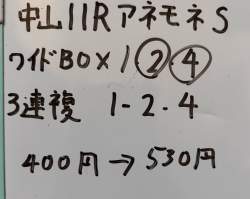 中山11RアネモネS
ワイドBOX1②④
3連複 1-2.4
400円→530円